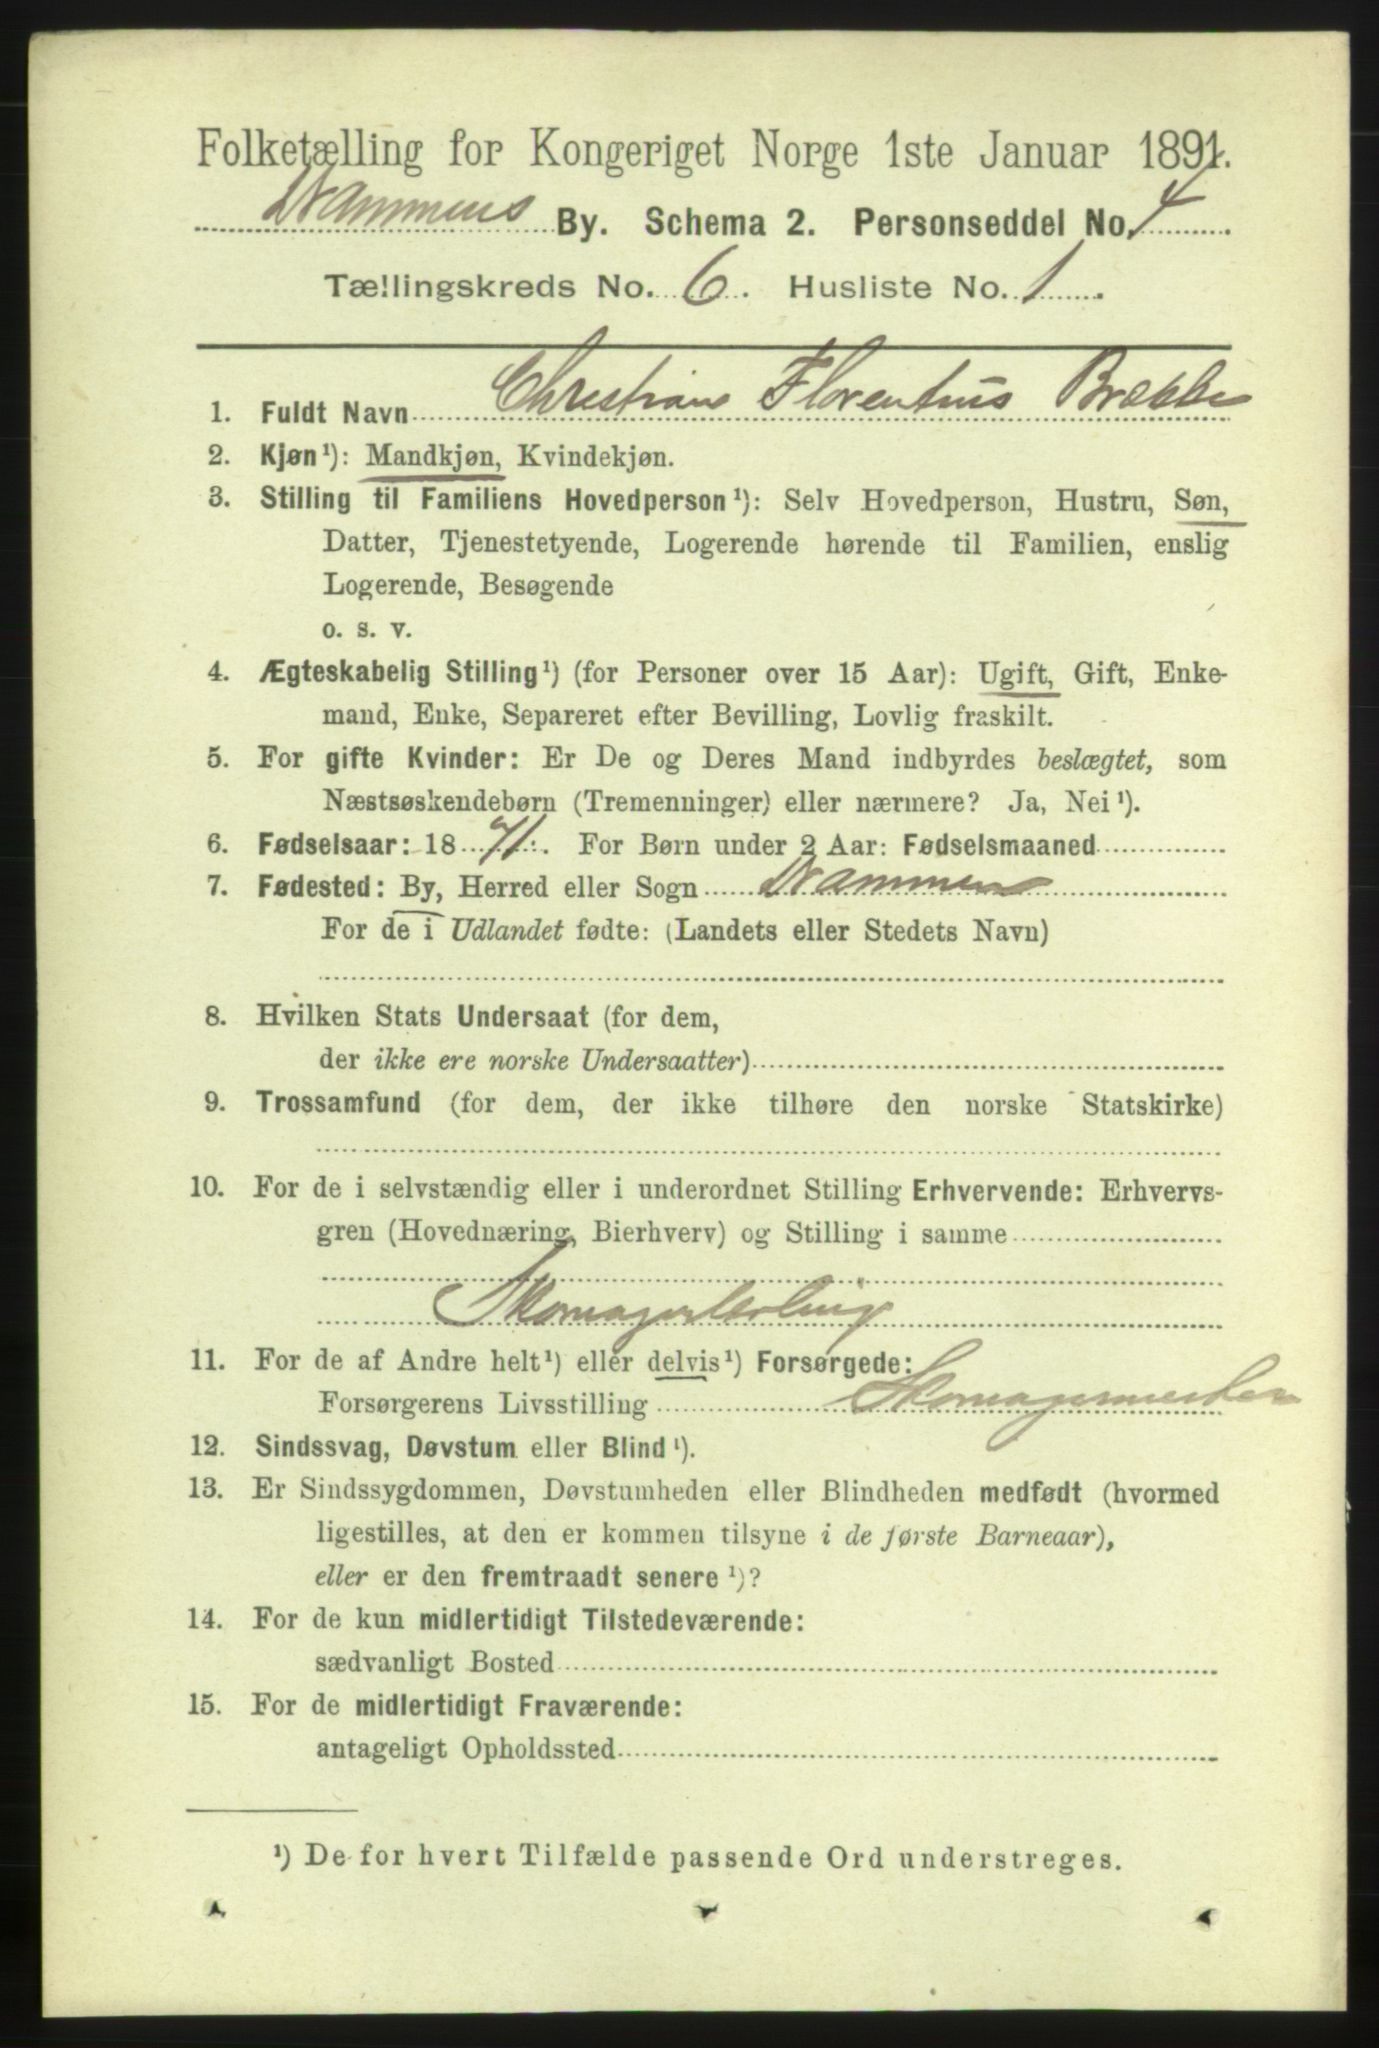 Folketælling for Kongeriget Norge 1ste Januar 1891.
Drammens By. Schema 2. Personseddel No. 4
Tællingskreds No. 6. Husliste No. 1
1. Fuldt Navn Christian Florentius Brække
2. Kjøn¹): Mandkjøn, Kvindekjøn.
3. Stilling til Familiens Hovedperson¹): Selv Hovedperson, Hustru, Søn,
Datter, Tjenestetyende, Logerende hørende til Familien, enslig
Logerende, Besøgende
o. s. v.
4. Ægteskabelig Stilling¹) (for Personer over 15 Aar): Ugift, Gift, Enke-
mand, Enke, Separeret efter Bevilling, Lovlig fraskilt.
5. For gifte Kvinder: Er De og Deres Mand indbyrdes beslægtet, som
Næstsøskendebørn (Tremenninger) eller nærmere? Ja, Nei¹).
6. Fødselsaar: 1871. For Børn under 2 Aar: Fødselsmaaned
7. Fødested: By, Herred eller Sogn Drammen
For de i Udlandet fødte: (Landets eller Stedets Navn)
8. Hvilken Stats Undersaat (for dem,
der ikke ere norske Undersaatter)
9. Trossamfund (for dem, der ikke tilhøre den norske Statskirke)
10. For de i selvstændig eller i underordnet Stilling Erhvervende: Erhvervs-
gren (Hovednæring, Bierhverv) og Stilling i samme
Skomagerlerling
11. For de af Andre helt¹) eller delvis¹) Forsørgede:
Forsørgerens Livsstilling Skomagermester
12. Sindssvag, Døvstum eller Blind¹).
13. Er Sindssygdommen, Døvstumheden eller Blindheden medfødt (hvormed
ligestilles, at den er kommen tilsyne i de første Barneaar),
eller er den fremtraadt senere¹)?
14. For de kun midlertidigt Tilstedeværende:
sædvanligt Bosted
15. For de midlertidigt Fraværende:
antageligt Opholdssted
¹) De for hvert Tilfælde passende Ord understreges.